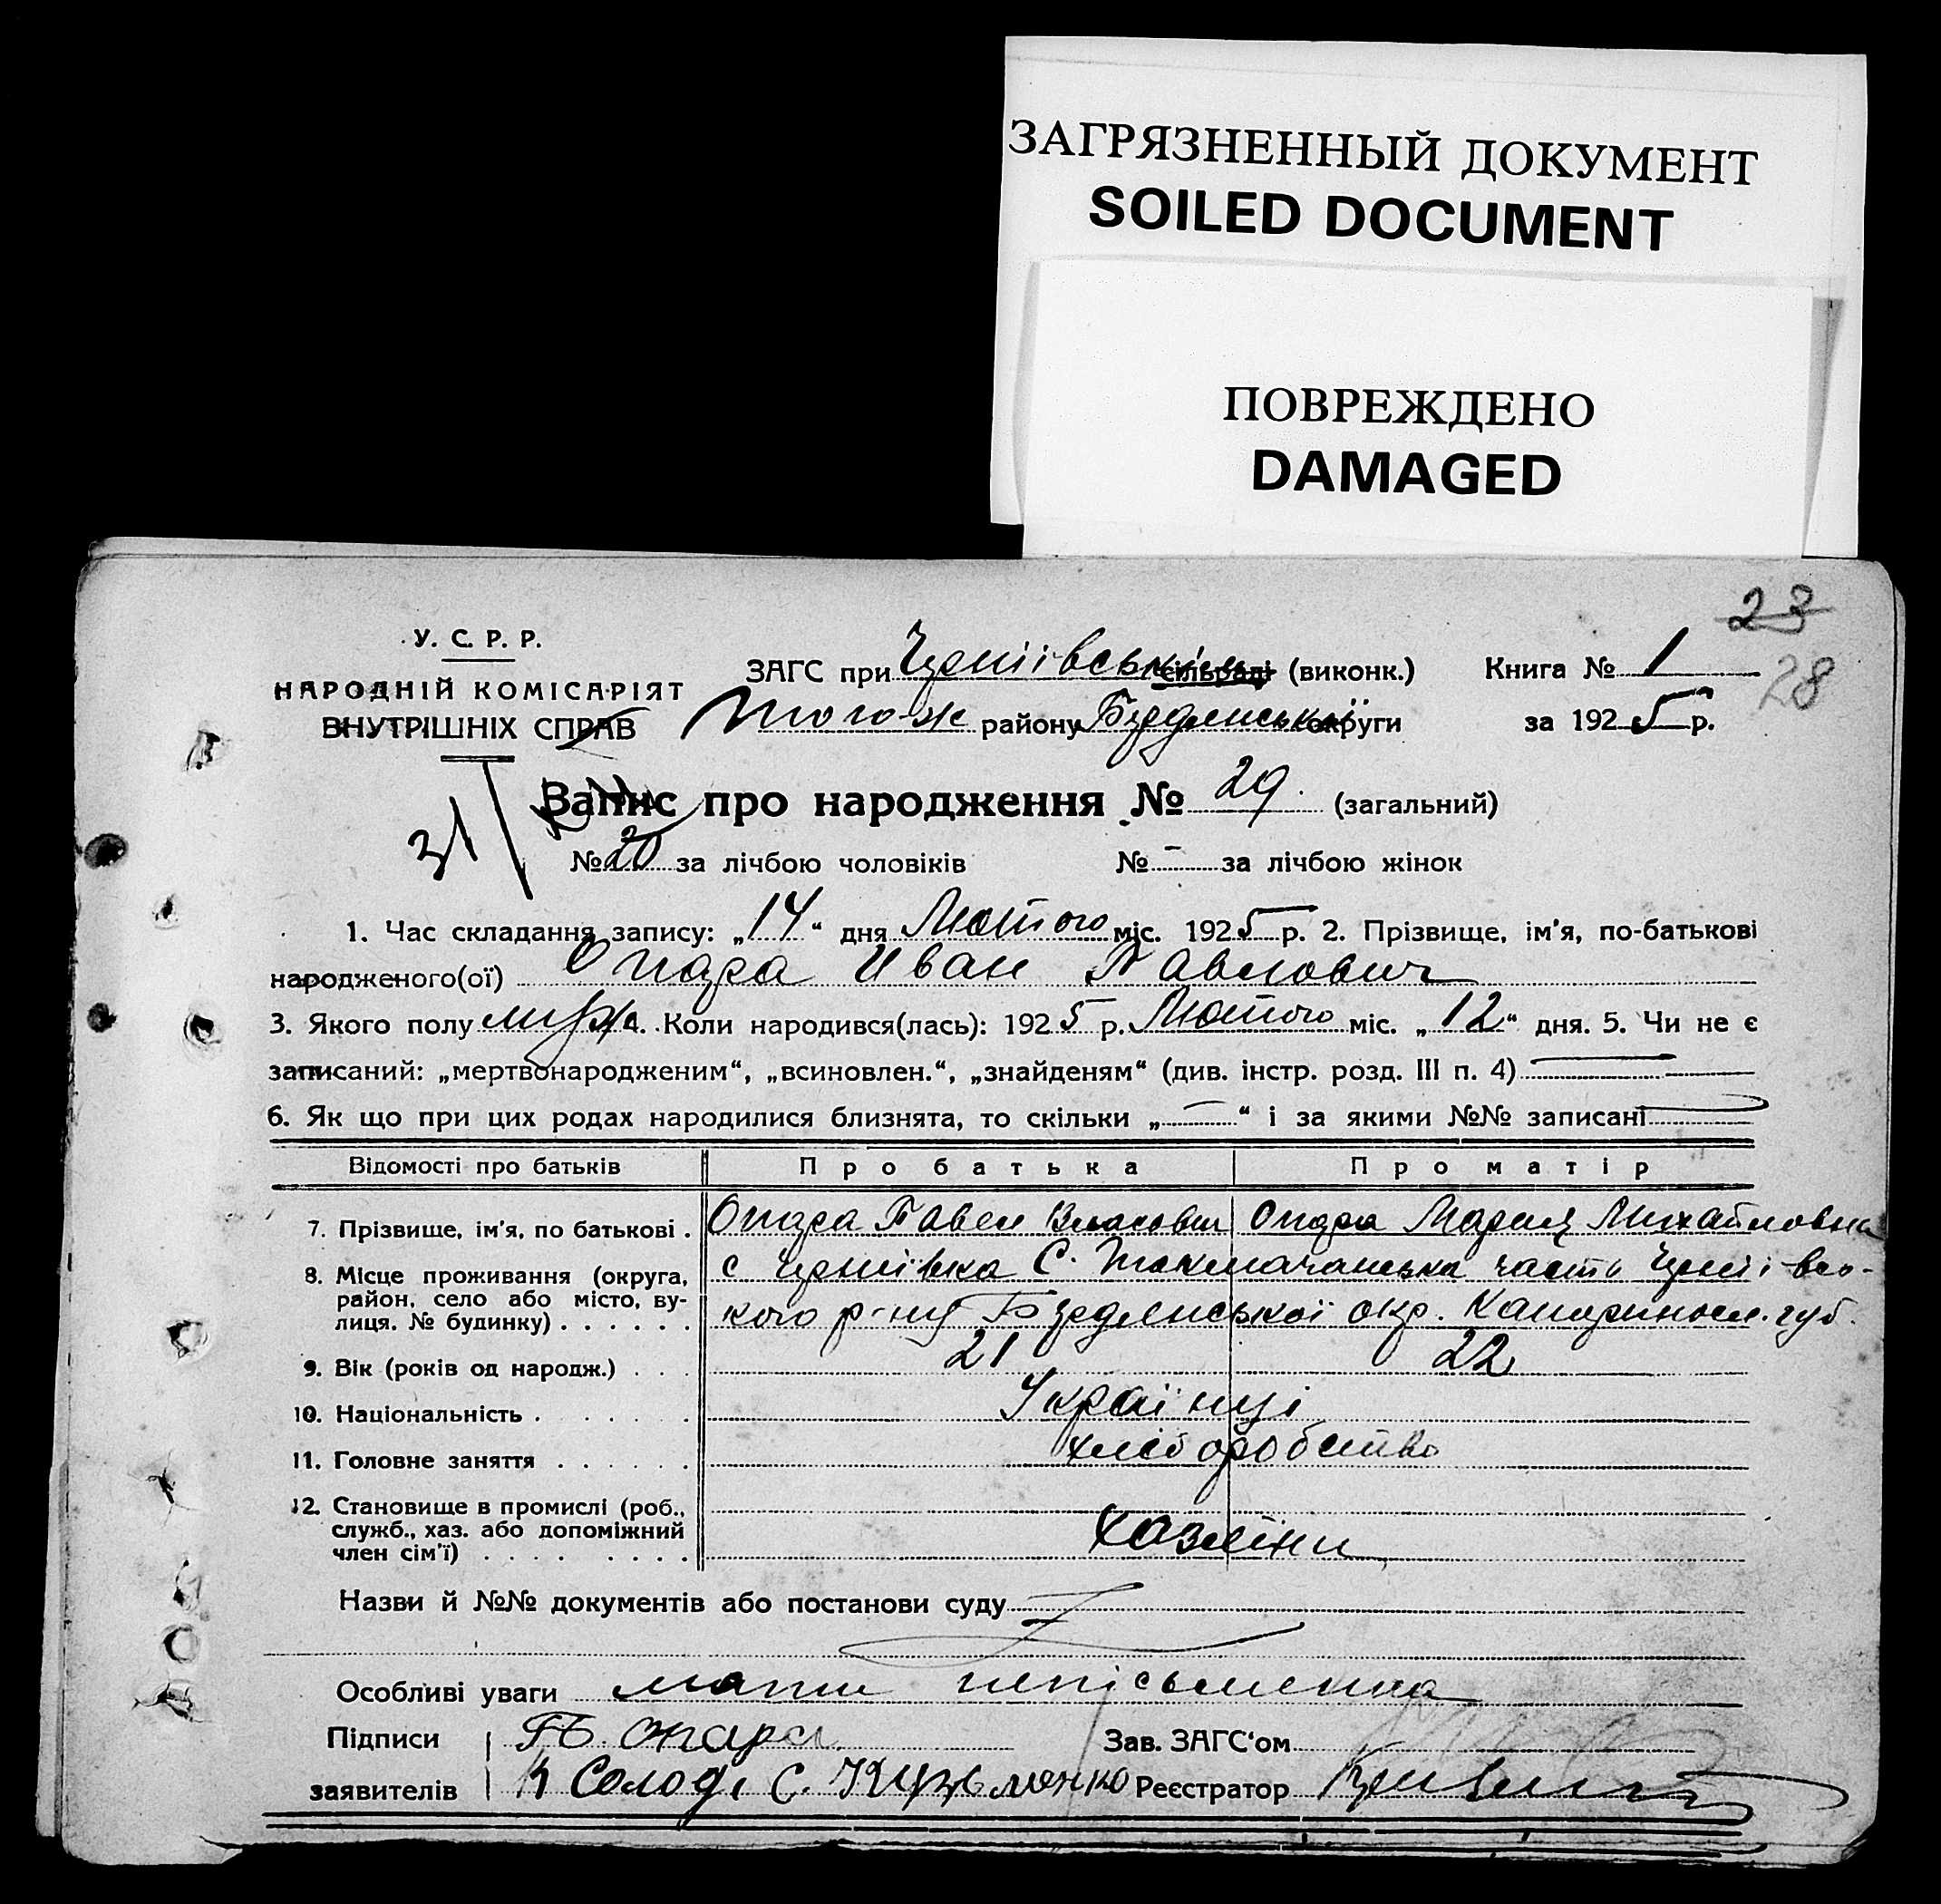 ЗАГРЯЗНЕННЫЙ ДОКУМЕНТ
SOILED DOCUMENT
ПОВРЕЖДЕНО
DAMAGED
23
28
У. С. Р. Р.
НАРОДНІЙ КОМІСАРІЯТ
ВНУТРІШНІХ СПРАВ
ЗАГС при сільраді (виконк.) Книга № 1
того-ж району округи за 1925 р.
31
Запис про народження № 29. (загальний)
№ 20 за лічбою чоловіків № - за лічбою жінок
1. Час складання запису: „14“ дня Лютого міс. 1925 р. 2. Прізвище, ім'я, по-батькові
народженого(ої) Опара Иван Павлович
3. Якого полу муж. 4. Коли народився(лась): 1925 р. Лютого міс. „12“ дня. 5. Чи не є
записаний: „мертвонародженим“, „всиновлен.“, „знайденям“ (див. інстр. розд. III п. 4) —
6. Як що при цих родах народилися близнята, то скільки „—“ і за якими №№ записані —
Відомості про батьків Про батька Про матір
7. Прізвище, ім'я, по батькові . Опара Павел Власович Опара Мария Михайловна
8. Місце проживання (округа, район, село або місто, вулиця. № будинку) . . . . . . с С. Токмачанська часть
кого р-ну окр. губ.
9. Вік (років од народж.) . . . 21 22
10. Національність . . . . . . Українці
11. Головне заняття . . . . . . хлеборобство
12. Становище в промислі (роб., служб., хаз. або допоміжний член сім'ї) . . . . . . . . Хазяїни
Назви й №№ документів або постанови суду
Особливі уваги мати неписьменна
Підписи П. Опара Зав. ЗАГС'ом
заявителів К Солод, С. Кузьменко Реєстратор